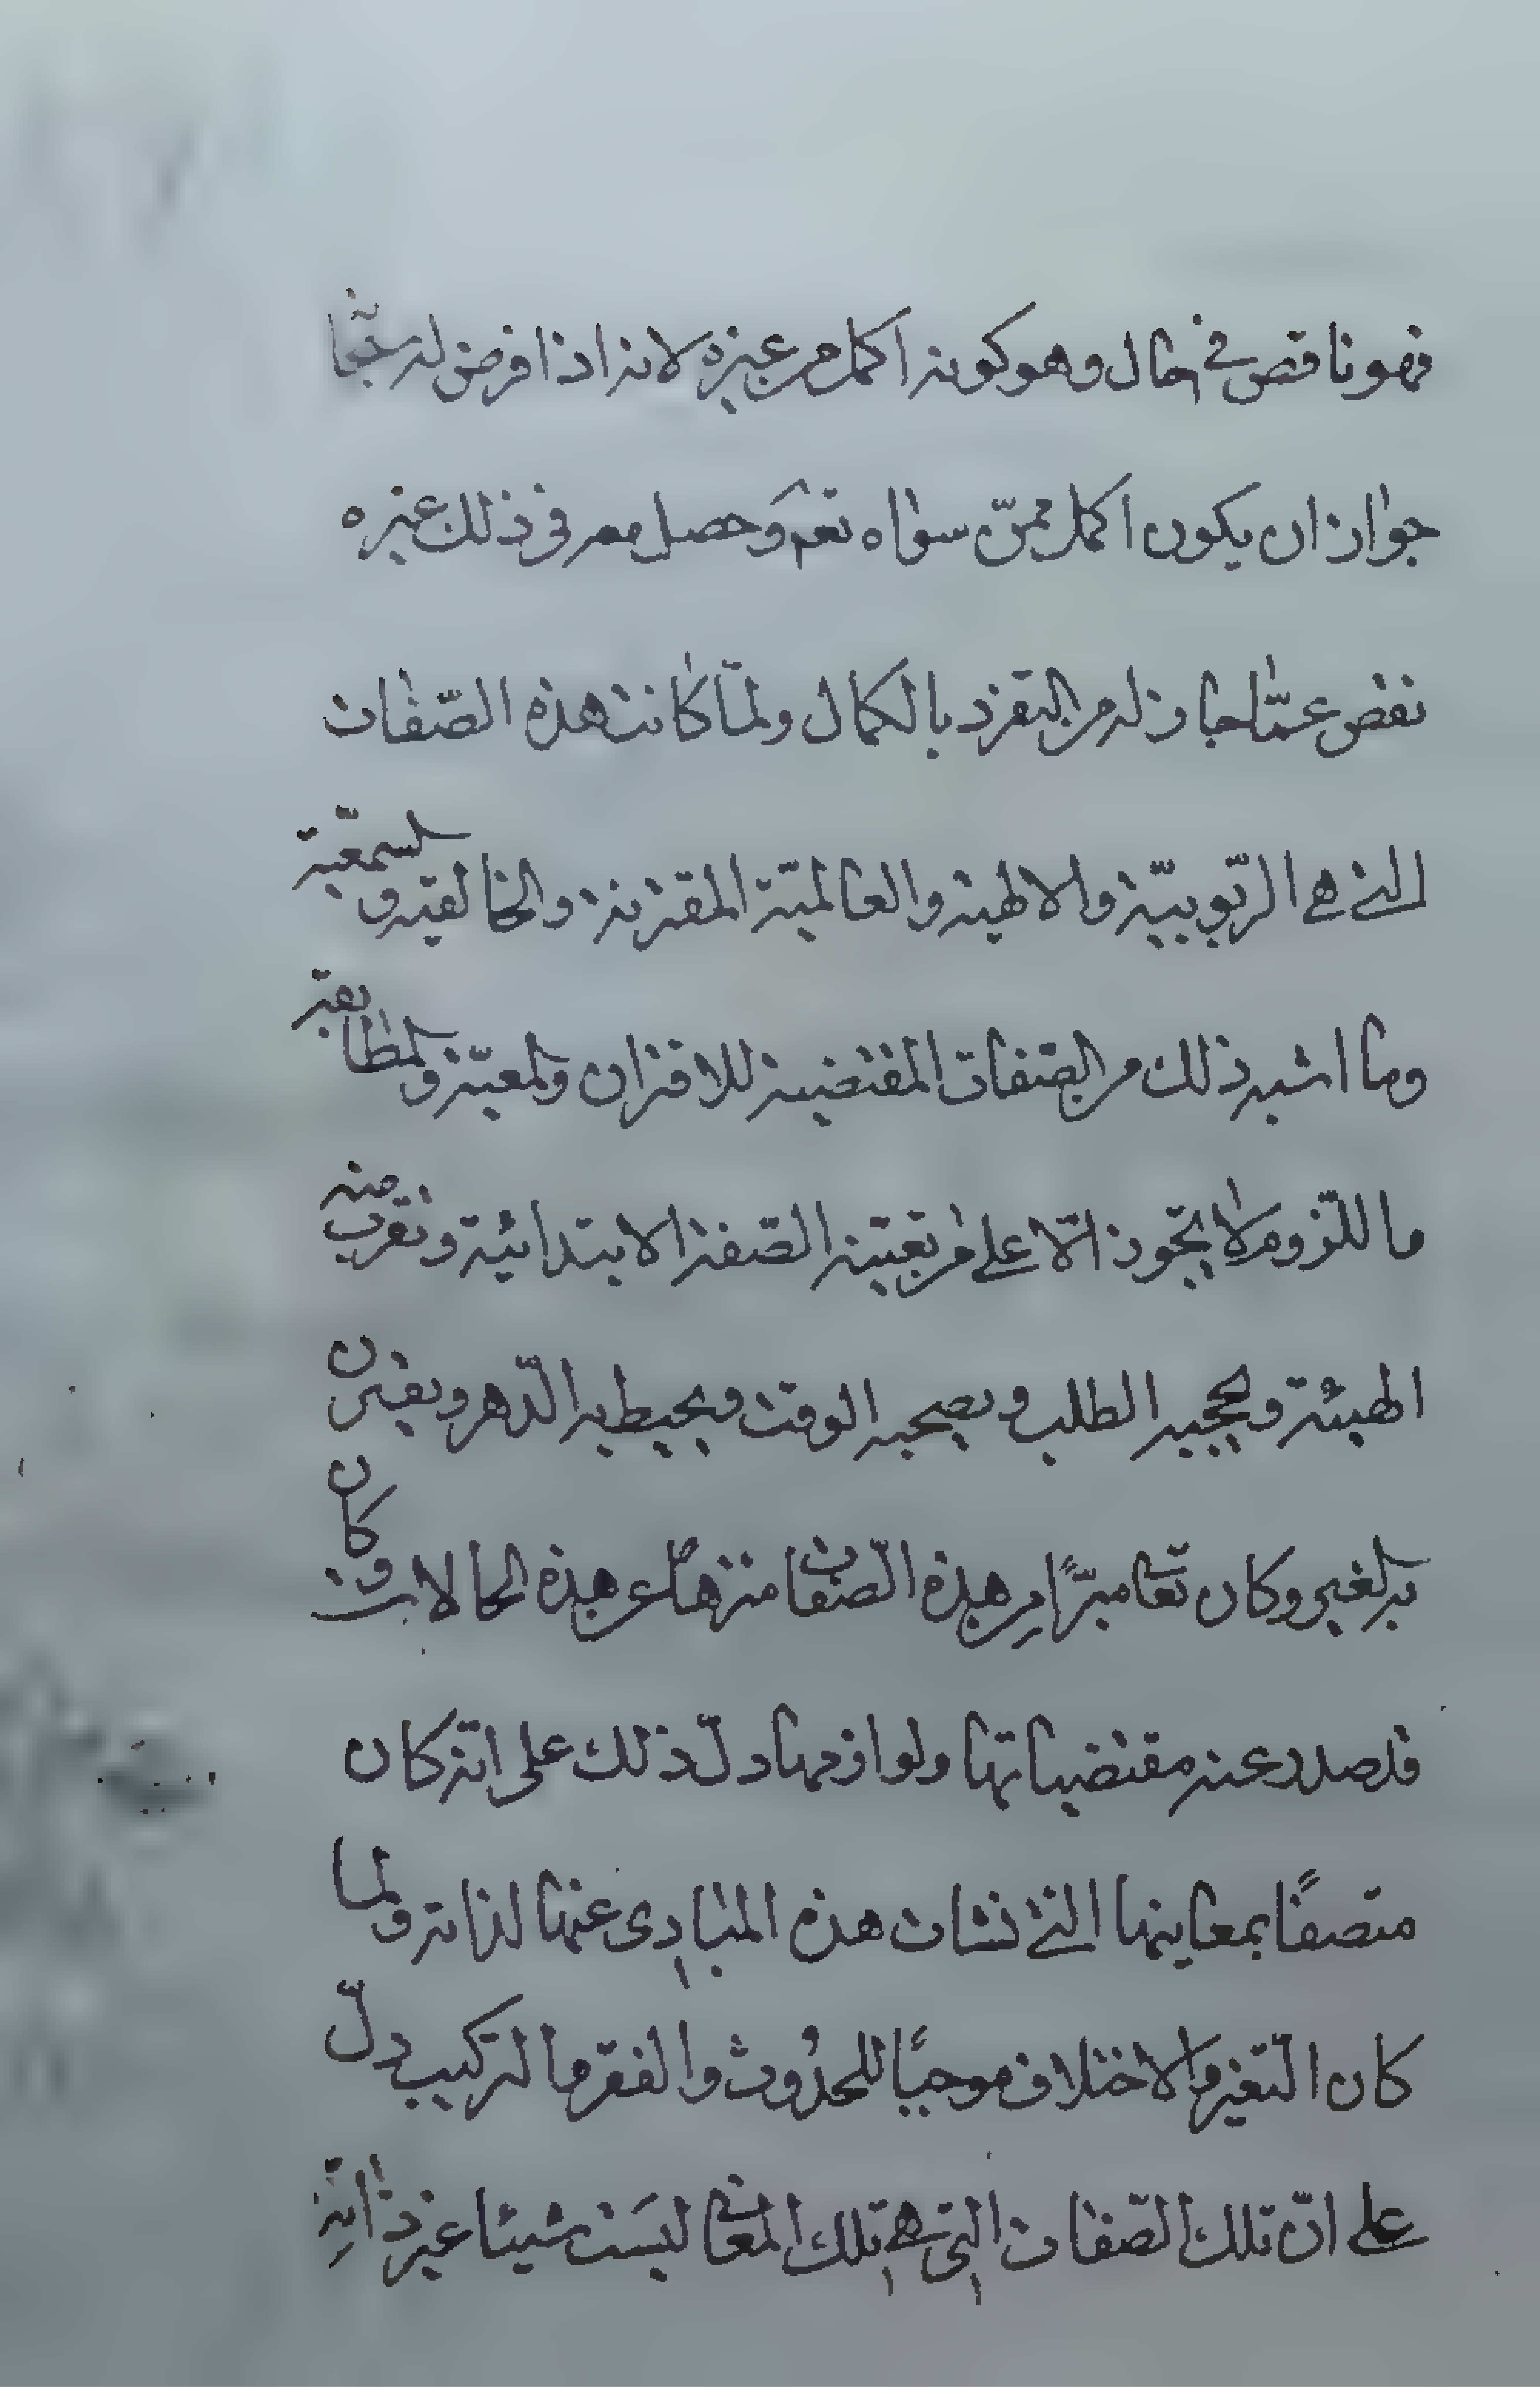 فهو ناقص في حال وهو كونه اكمل من غيره لانه اذا فرض له
جواز ان يكون اكمل ممّن سواه نعم وحصل معه في ذلك غيره
نقص عمّا جاز له من التفرد بالكمال ولمّا كانت هذه الصّفات
التى هى الرّبوبيّة والالهية والعالميّة المقترنة والخالقيه والسمعيّة
وما اشبه ذلك من الصّفات المقتضية للاقتران والمعيّة والمطابقة
ما للّزوم لا يجوز الّا على من تعيّنه الصّفة الابتدائية وتقرب منه
الهيئة ويحجبه الطلب ويصحبه الوقت ويحيط به الدّهر ويقترن
به الغير وكان تعالى مبرّاً من هذه الصّفات منزهاً عن هذه الحالات وقد كان
قد صدر عنه مقتضياتها ولوازمها دلّ ذلك على انّه كان
متصفاً بمعانيها التى نشات هذه المبادى عنها لذاته ولما
كان التّغير والاختلاف موجبًا للحدوث والفقر والتركيب دلّ
على انّ تلك الصّفات التى هى تلك المعانى ليست شيئا غير ذاته